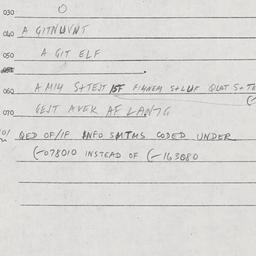 030 O
040 A GITNUVNT
050 A GIT ELF
060 A MIY S+TEJT FINNEM S+LUF QUOT S+TE
070 GEJT AVEK AF LANTG
QED OF/IF INFO SMTMS CODED UNDER
(-078010 INSTEAD OF (-163080